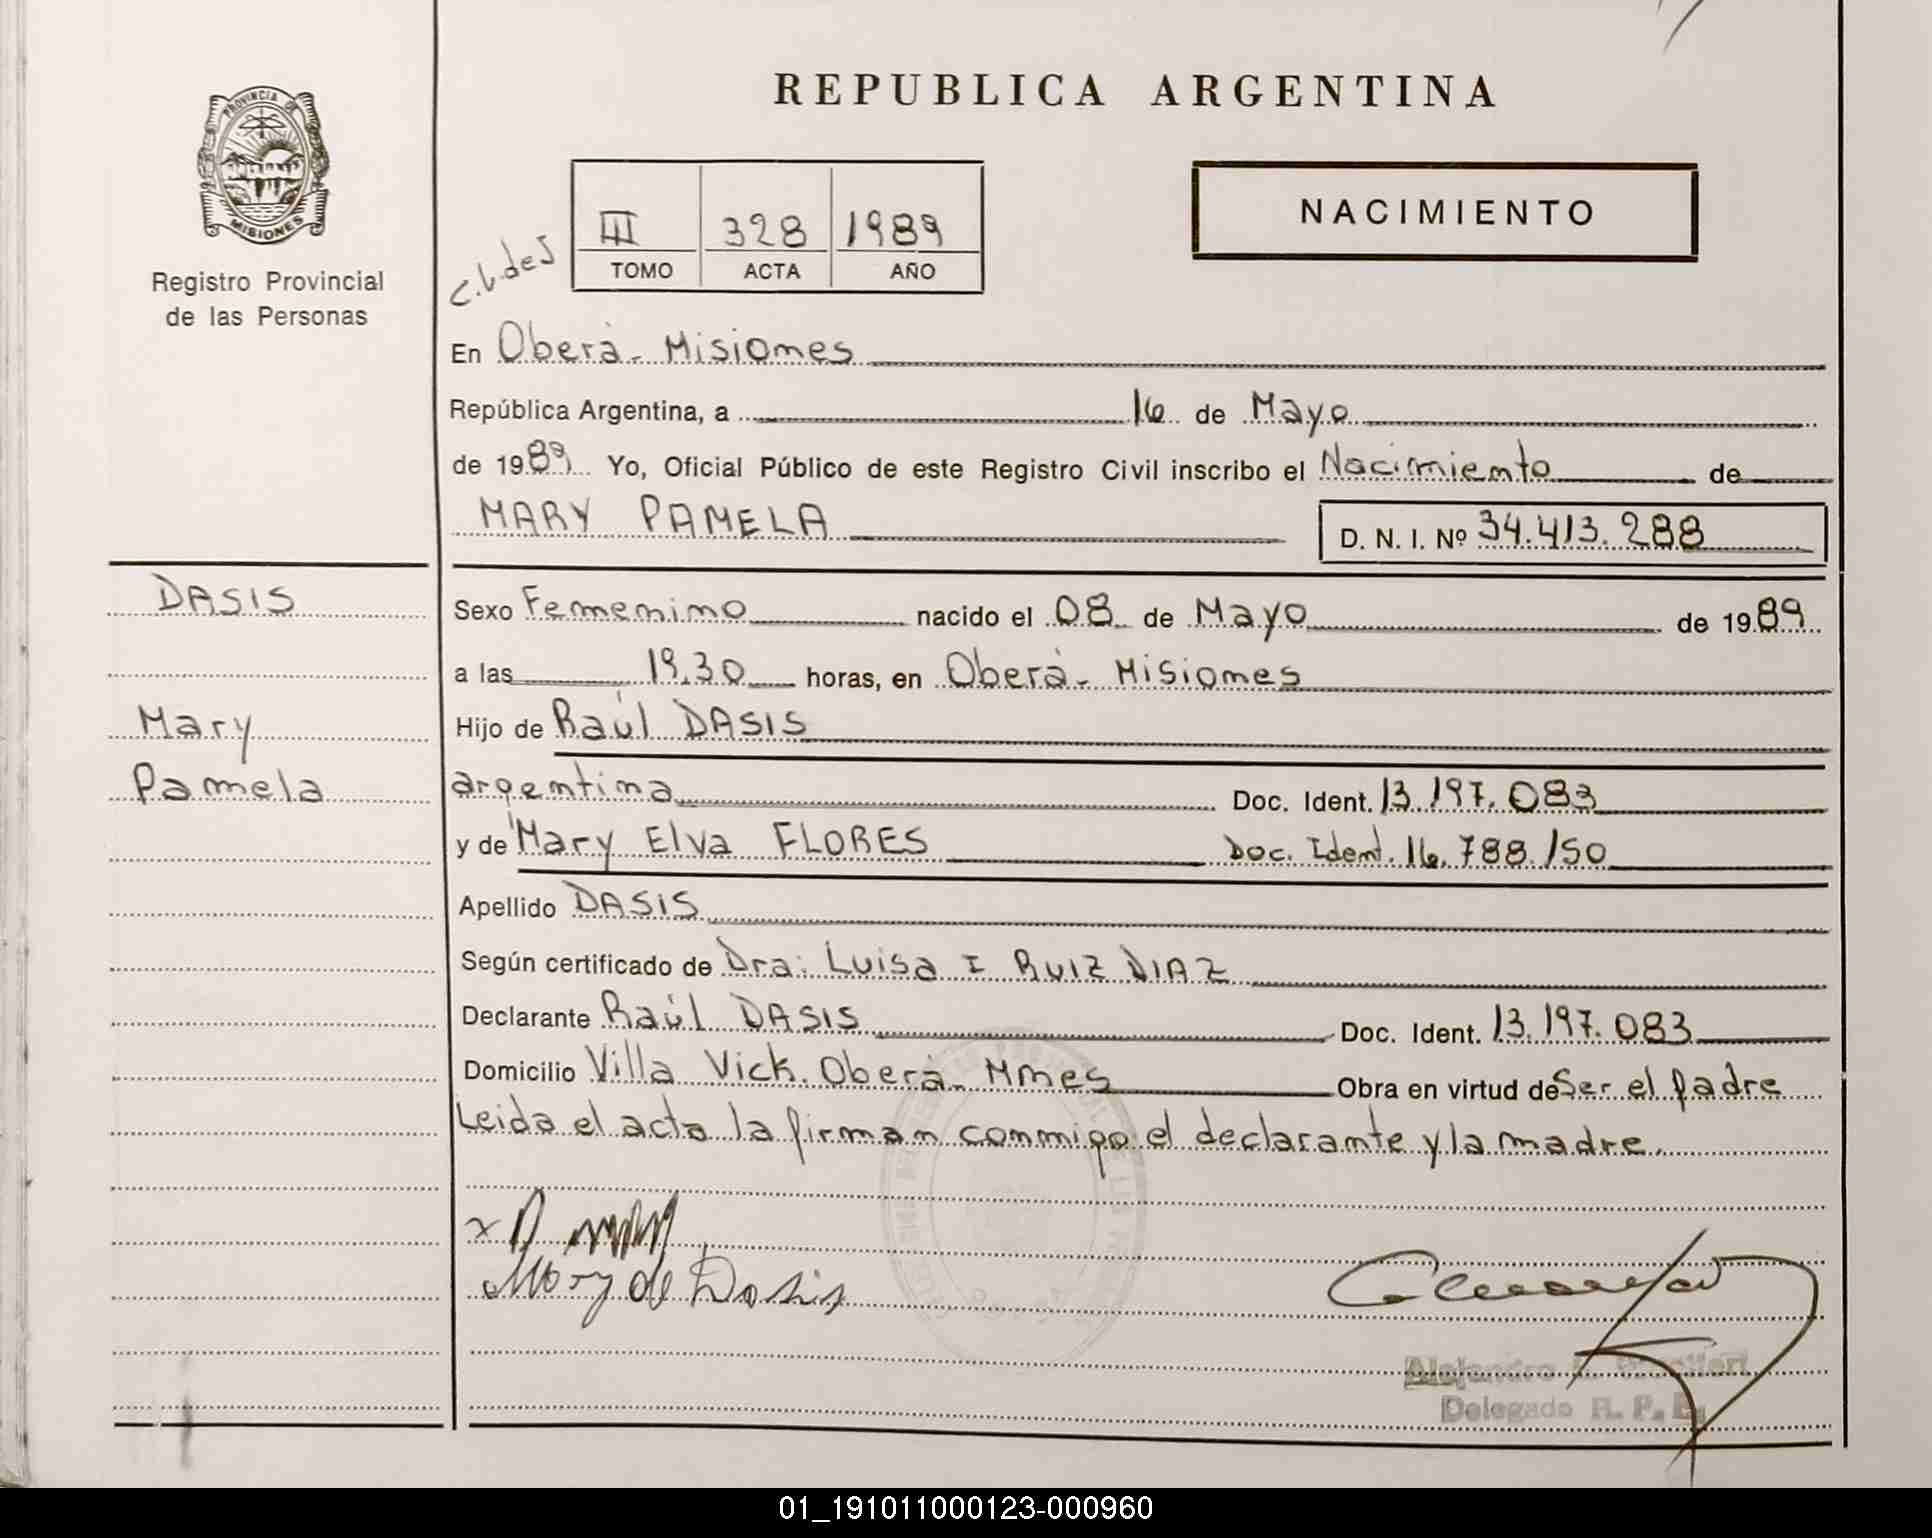 REPUBLICA ARGENTINA
PROVINCIA DE
MISIONES
Registro Provincial
de las Personas
III 328 1989
TOMO ACTA AÑO
NACIMIENTO
En Oberá - Misiones
República Argentina, a 16 de Mayo
de 1989 Yo, Oficial Público de este Registro Civil inscribo el Nacimiento de
MARY PAMELA
D. N. I. Nº 34.413.288
DASIS
Mary
Pamela
Sexo Femenino nacido el 08 de Mayo de 1989
a las 19,30 horas, en Oberá - Misiones
Hijo de Raúl DASIS
argentina Doc. Ident. 13.197.083
y de Mary Elva FLORES Doc. Ident. 16.788.150
Apellido DASIS
Según certificado de Dra: Luisa I RUIZ DIAZ
Declarante Raúl DASIS Doc. Ident. 13.197.083
Domicilio Villa Vick. Oberá - Mnes Obra en virtud de Ser el padre
Leida el acta la firman conmigo el declarante y la madre.
x
Mary de Dasis
Alejandro
Delegado R. P.
01_191011000123-000960